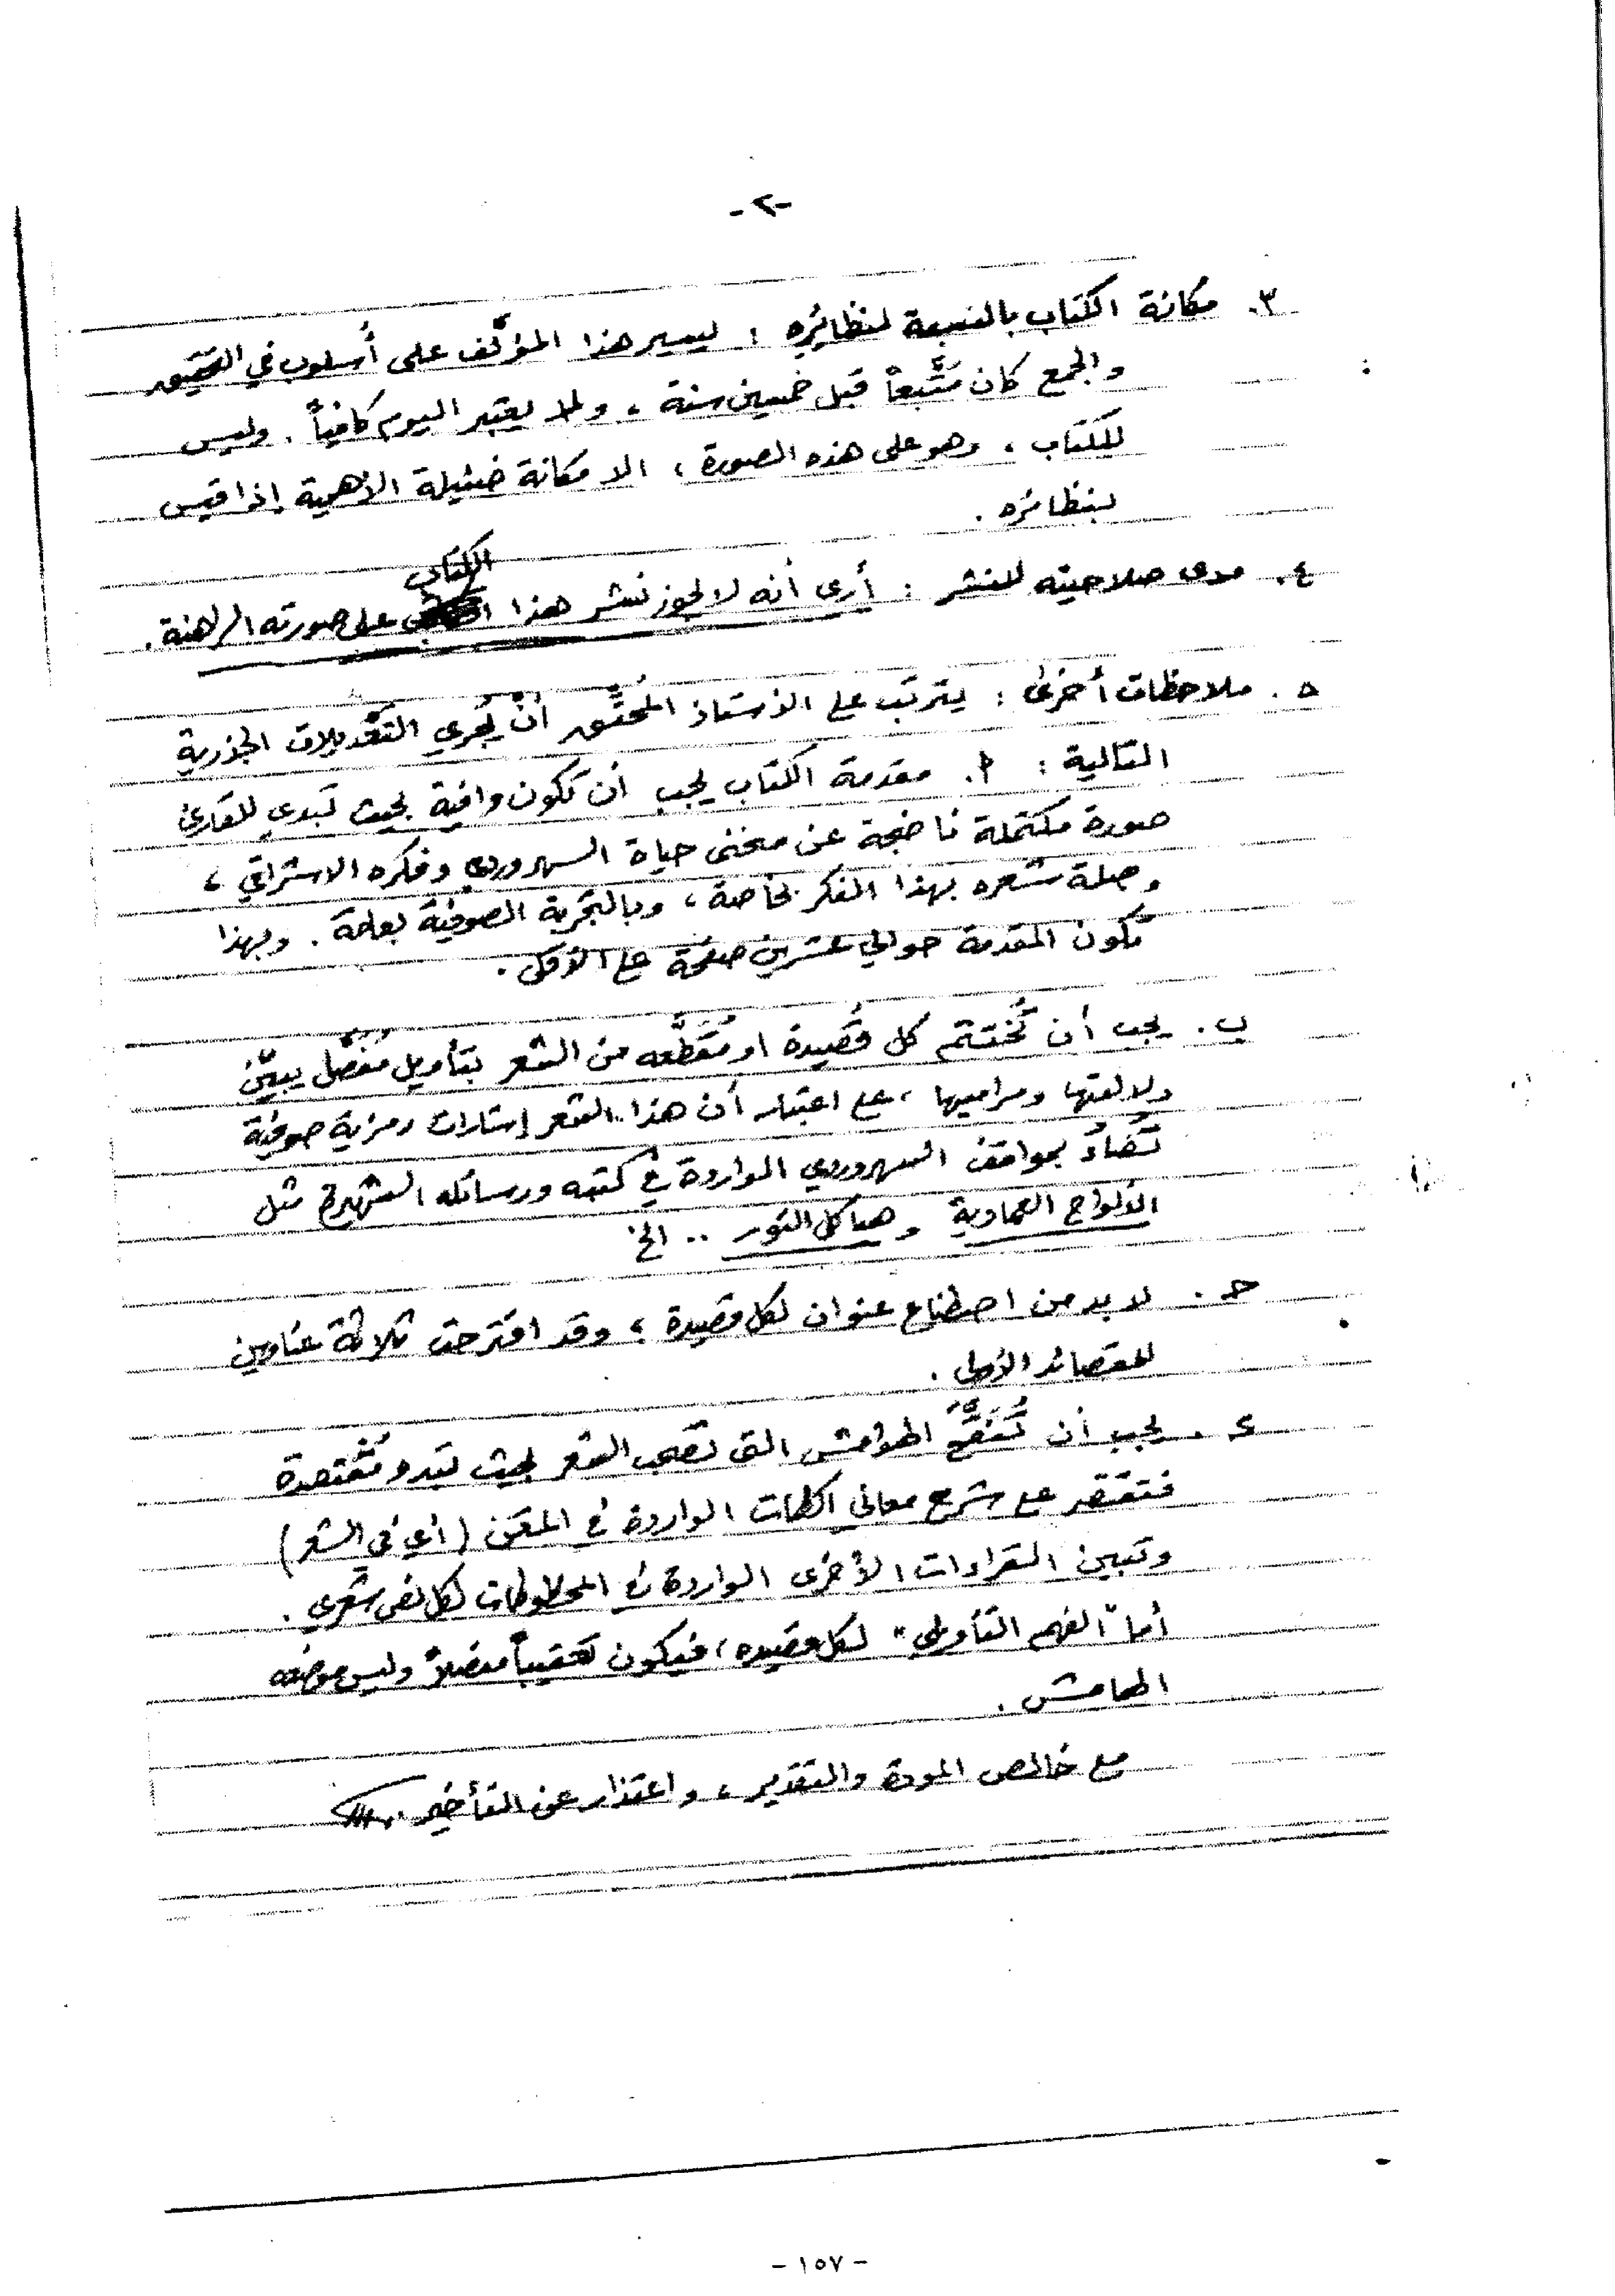 -٢-
٣. مكانة الكتاب بالنسبة لنظائره : يسير هذا المؤلَّف على أسلوب في التحقيق
والجمع كان مُتَّبعاً قبل خمسين سنة ، ولا يعتبر اليوم كافياً . وليس
للكتاب ، وهو على هذه الصورة ، الا مكانة ضئيلة الأهمية إذا قيس
بنظائره .
٤. مدى صلاحيته للنشر : أرى أنه لا يجوز نشر هذا الكتاب على صورته الراهنة .
٥. ملاحظات أخرى : يترتب على الأستاذ المُحقِّق أنْ يُجري التَّعديلات الجذرية
التالية : أ. مقدمة الكتاب يجب أن تكون وافية بحيث تبدي للقارئ
صورة مكتملة ناضجة عن منحنى حياة السهروردي وفكره الاشراقي ،
وصلة شعره بهذا الفكر بخاصة ، وبالتجربة الصوفية بعامة . وبهذا
تكون المقدمة حوالي عشرين صفحة على الأقل .
ب. يجب أن تُختتم كل قصيدة او مُقَطَّعه من الشعر بتأويل مُفَصَّل يبيّن
دلالتها ومراميها ، على اعتبار أن هذا الشعر إشارات رمزية صوفيّة
تُضاءُ بمواقف السهروردي الواردة في كتبه ورسائله الشهيرة مثل
الألواح العمادية وهياكل النور .. الخ
حـ. لا بد من اصطناع عنوان لكل قصيدة ؛ وقد اقترحت ثلاثة عناوين
للقصائد الأولى .
د. يجب أن تُنَقَّحَ الهوامش التي تصحب الشعر بحيث تبدو مُقْتصدة
فتقتصر على شرح معاني الكلمات الواردة في المتن (أي في الشعر)
وتبين القراءات الأخرى الواردة في المخطوطات لكل نص شعري .
أما "الفهم التأويلي" لكل قصيده ، فيكون تعقيباً مفصلاً وليس موضعه
الهامش .
مع خالص المودة والتقدير ، واعتذار عن التأخير ..
- ١٥٧ -